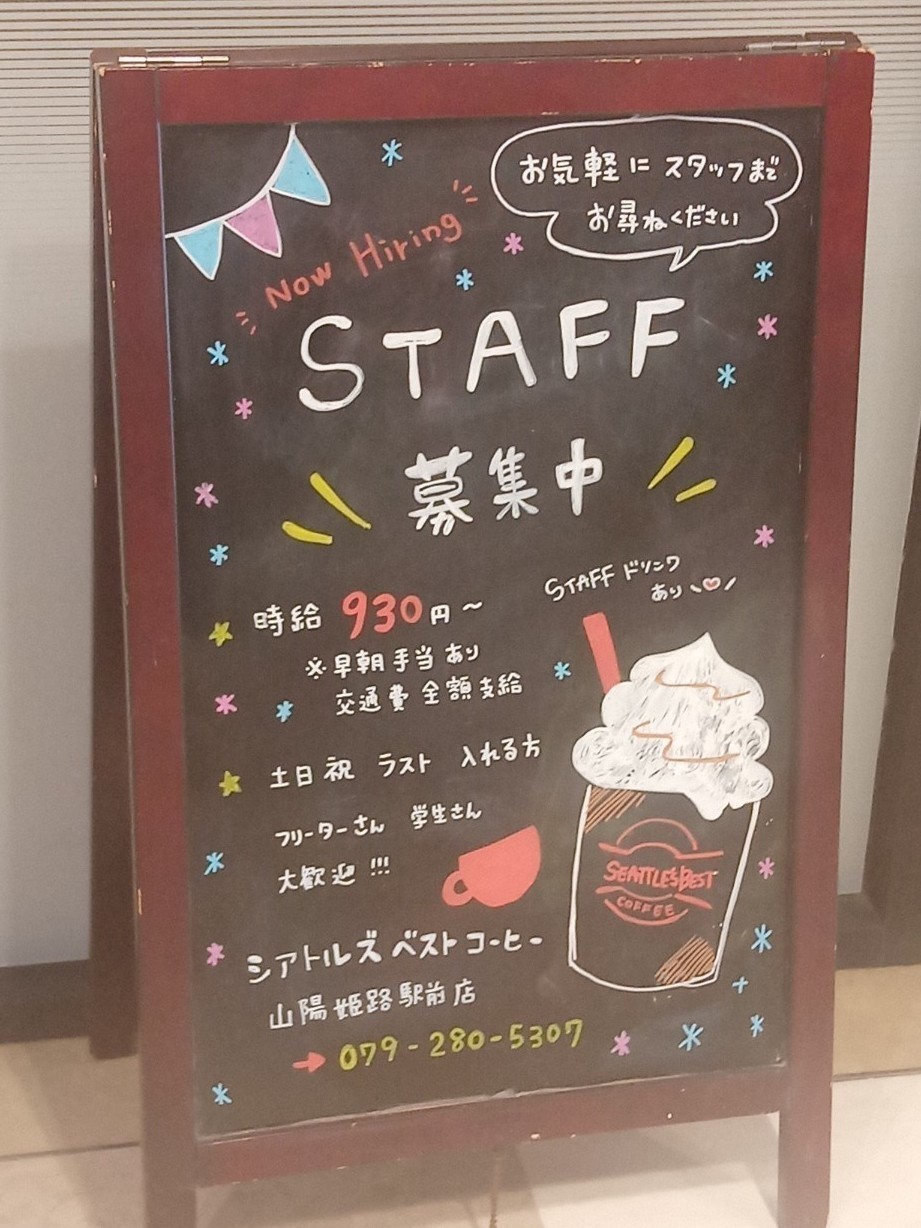 お気軽に スタッフまで
お尋ねください
Now Hiring
STAFF
募集中
STAFF ドリンク
あり
時給 930円〜
※早朝手当あり
交通費全額支給
土日祝 ラスト 入れる方
フリーターさん 学生さん
大歓迎!!!
SEATTLE'S BEST
COFFEE
シアトルズベストコーヒー
山陽姫路駅前店
→079-280-5307